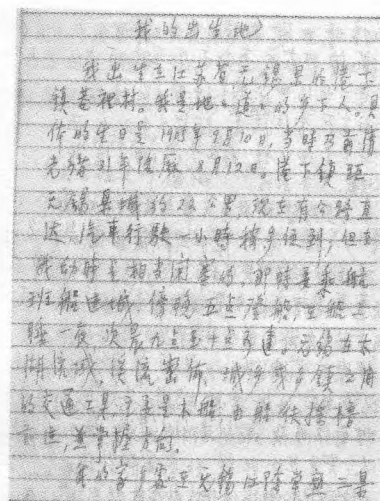 我的出生地
我出生在江苏省无锡县的港下
镇巷裡村。我是地《道》的乡下人。具
体的生日是1905年9月10日,当时为前清
光绪31年阴历8月12日。港下镇距
无锡县城约22公里,现在有公路直
达,汽車行駛一小時稍多便到,但在
我幼時是相当闭塞的。那時要乘航
班船进城,傍晚五点登船,在船上
睡一夜次晨九点至十点多達。无锡在太
湖流域,溪流密佈,城乡或乡镇之间
的交通工具,主要是木船,由船伕摇櫓
前进,並掌握方向。
我的家乡处在无锡江陰常熟三县